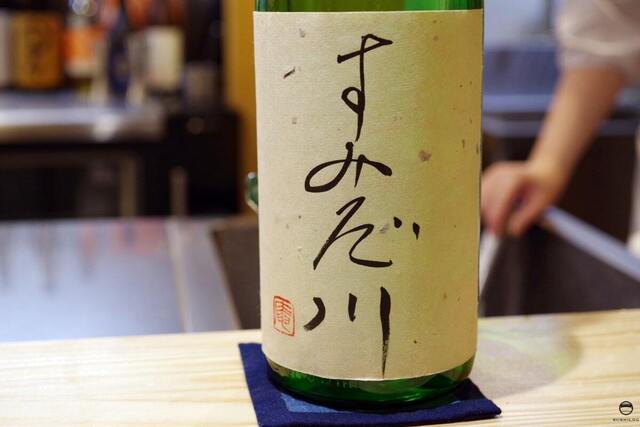 すみだ川
SUSHILOG